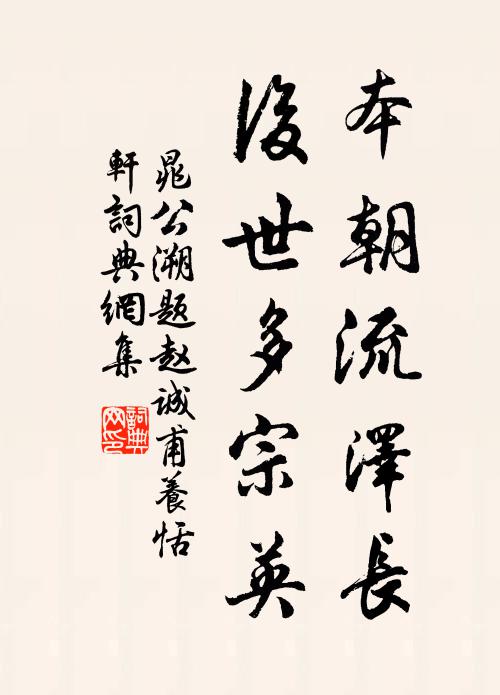 本朝流澤長
後世多宗英
晁公溯題赵誠甫養恬
軒詞典網集
詞典網印